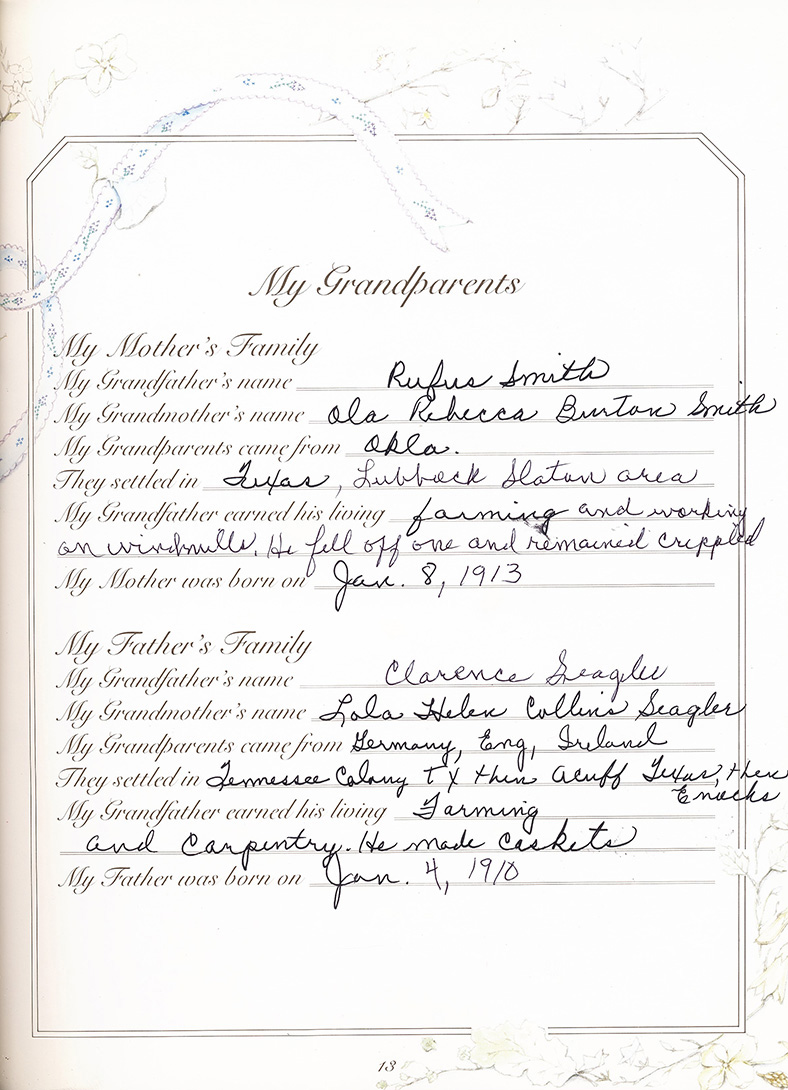 My Grandparents
My Mother's Family
My Grandfather's name Rufus Smith
My Grandmother's name Ola Rebecca Burton Smith
My Grandparents came from Okla.
They settled in Texas, Lubbock Slaton area
My Grandfather earned his living farming and working
on windmills. He fell off one and remained crippled
My Mother was born on Jan. 8, 1913
My Father's Family
My Grandfather's name Clarence Seagler
My Grandmother's name Lola Helen Collins Seagler
My Grandparents came from Germany, Eng, Ireland
They settled in Tennessee Colony TX then Acuff Texas, then
Enochs
My Grandfather earned his living Farming
and Carpentry. He made caskets
My Father was born on Jan. 4, 1910
13